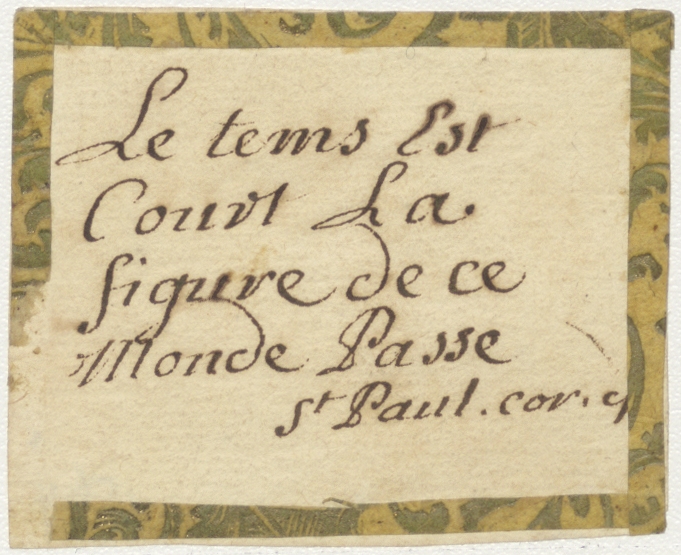 Le tems Est
Court La
figure de ce
Monde Passe
st Paul. cor.